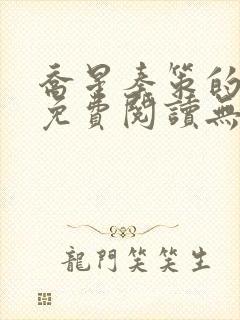 喬星秦策的
免費閱讀無
龍門笑笑生